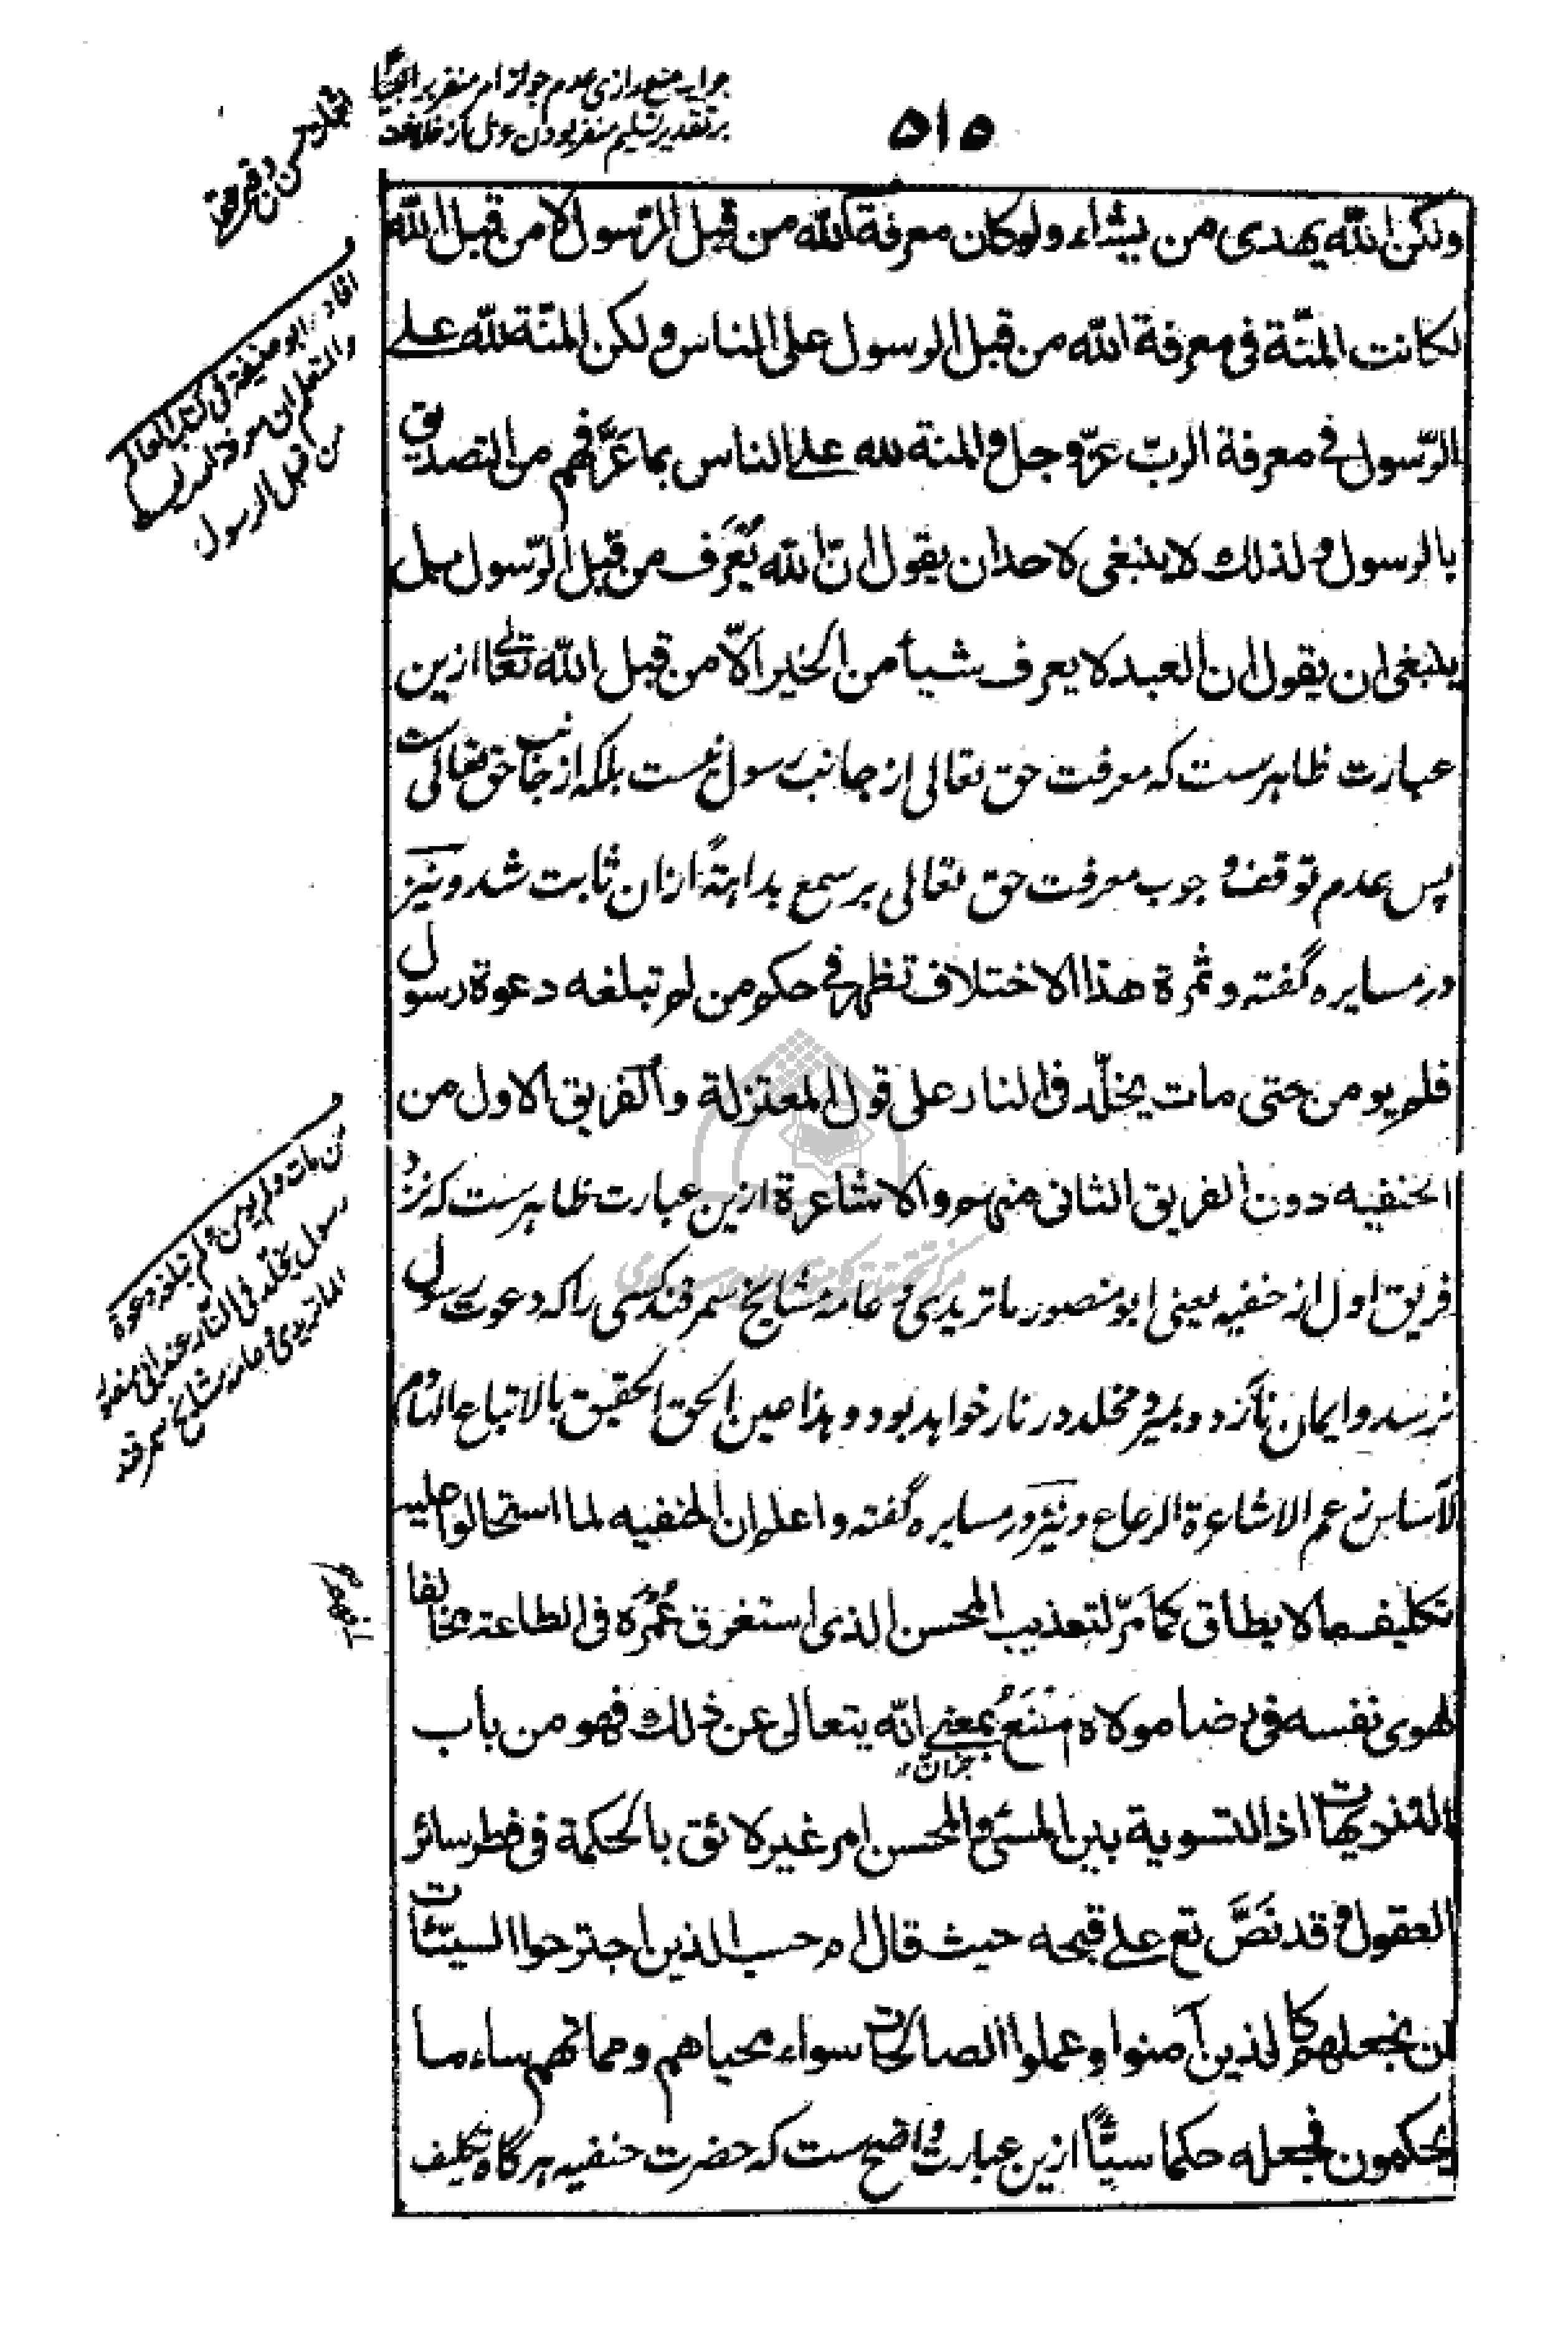 جواب منع رازی عدم جواز ام منفر بر انبیا
بر تقدیر تسلیم منفر بودن عزل از خلافت
۵۱۵
ولكن الله يهدى من يشاء ولو كان معرفة الله من قبل الرسول لا من قبل الله
لكانت المنّة فى معرفة الله من قبل الرسول على الناس ولكن المنّة لله على
الرّسول فى معرفة الربّ عزّ وجل والمنة لله على الناس بما عَرَّفهم من التصديق
بالرسول ولذلك لا ينبغى لاحد ان يقول انّ الله يُعرَف من قبل الرّسول بل
ينبغى ان يقول ان العبد لا يعرف شيأ من الخير الّا من قبل الله تعالى ازين
عبارت ظاهرست كه معرفت حق تعالى از جانب رسول نيست بلكه از جانب حق تعالى ست
پس عدم توقف وجوب معرفت حق تعالى بر سمع بداهةً ازان ثابت شد ونيز
در مسايره گفته وثمرة هذا الاختلاف تظهر فى حكم من لم تبلغه دعوة رسول
فلم يومن حتى مات يخلّد فى النار على قول المعتزلة والفريق الاول من
الحنفيه دون الفريق الثانى منهم والاشاعرة ازين عبارت ظاهرست كه نزد
فريق اول از حنفيه يعنى ابو منصور ماتريدى و عامه مشايخ سمرقند كسى را كه دعوت رسول
نرسد وايمان نيآرد وبميرد مخلد در نار خواهد بود وهذا عين الحق الحقيق بالاتباع الهادم
لأساس زعم الاشاعرة الرعاع ونيز در مسايره گفته واعلم ان الحنفيه لما استحالوا عليه
تكليف ما لا يطاق كما مرّ لتعذيب المحسن الذى استغرق عُمُرَه فى الطاعة مخالفا
لهوى نفسه فى رضا مولاه مَنَعُ بمعنى انّه يتعالى عن ذلك فهو من باب
التنزيهات اذ التسوية بين المسئ والمحسن امر غير لائق بالحكمة فى فطر سائر
العقول وقد نَصَّ تع على قبحه حيث قال ام حسب الذين اجترحوا السيّئات
ان نجعلهم كالذين آمنوا وعملوا الصالحات سواء محياهم ومماتهم ساء ما
يحكمون فجعله حكما سيّأً ازين عبارت واضح ست كه حضرت حنفيه هرگاه تكليف
افاد ابو حنيفة فى كتاب العالم
والمتعلم ان معرفة الله ليست
من قبل الرسول
من مات ولم يومن ولم تبلغه دعوة
رسول يخلد فى النّار عند ابى منصور
الماتريدى وعامه مشايخ سمرقند